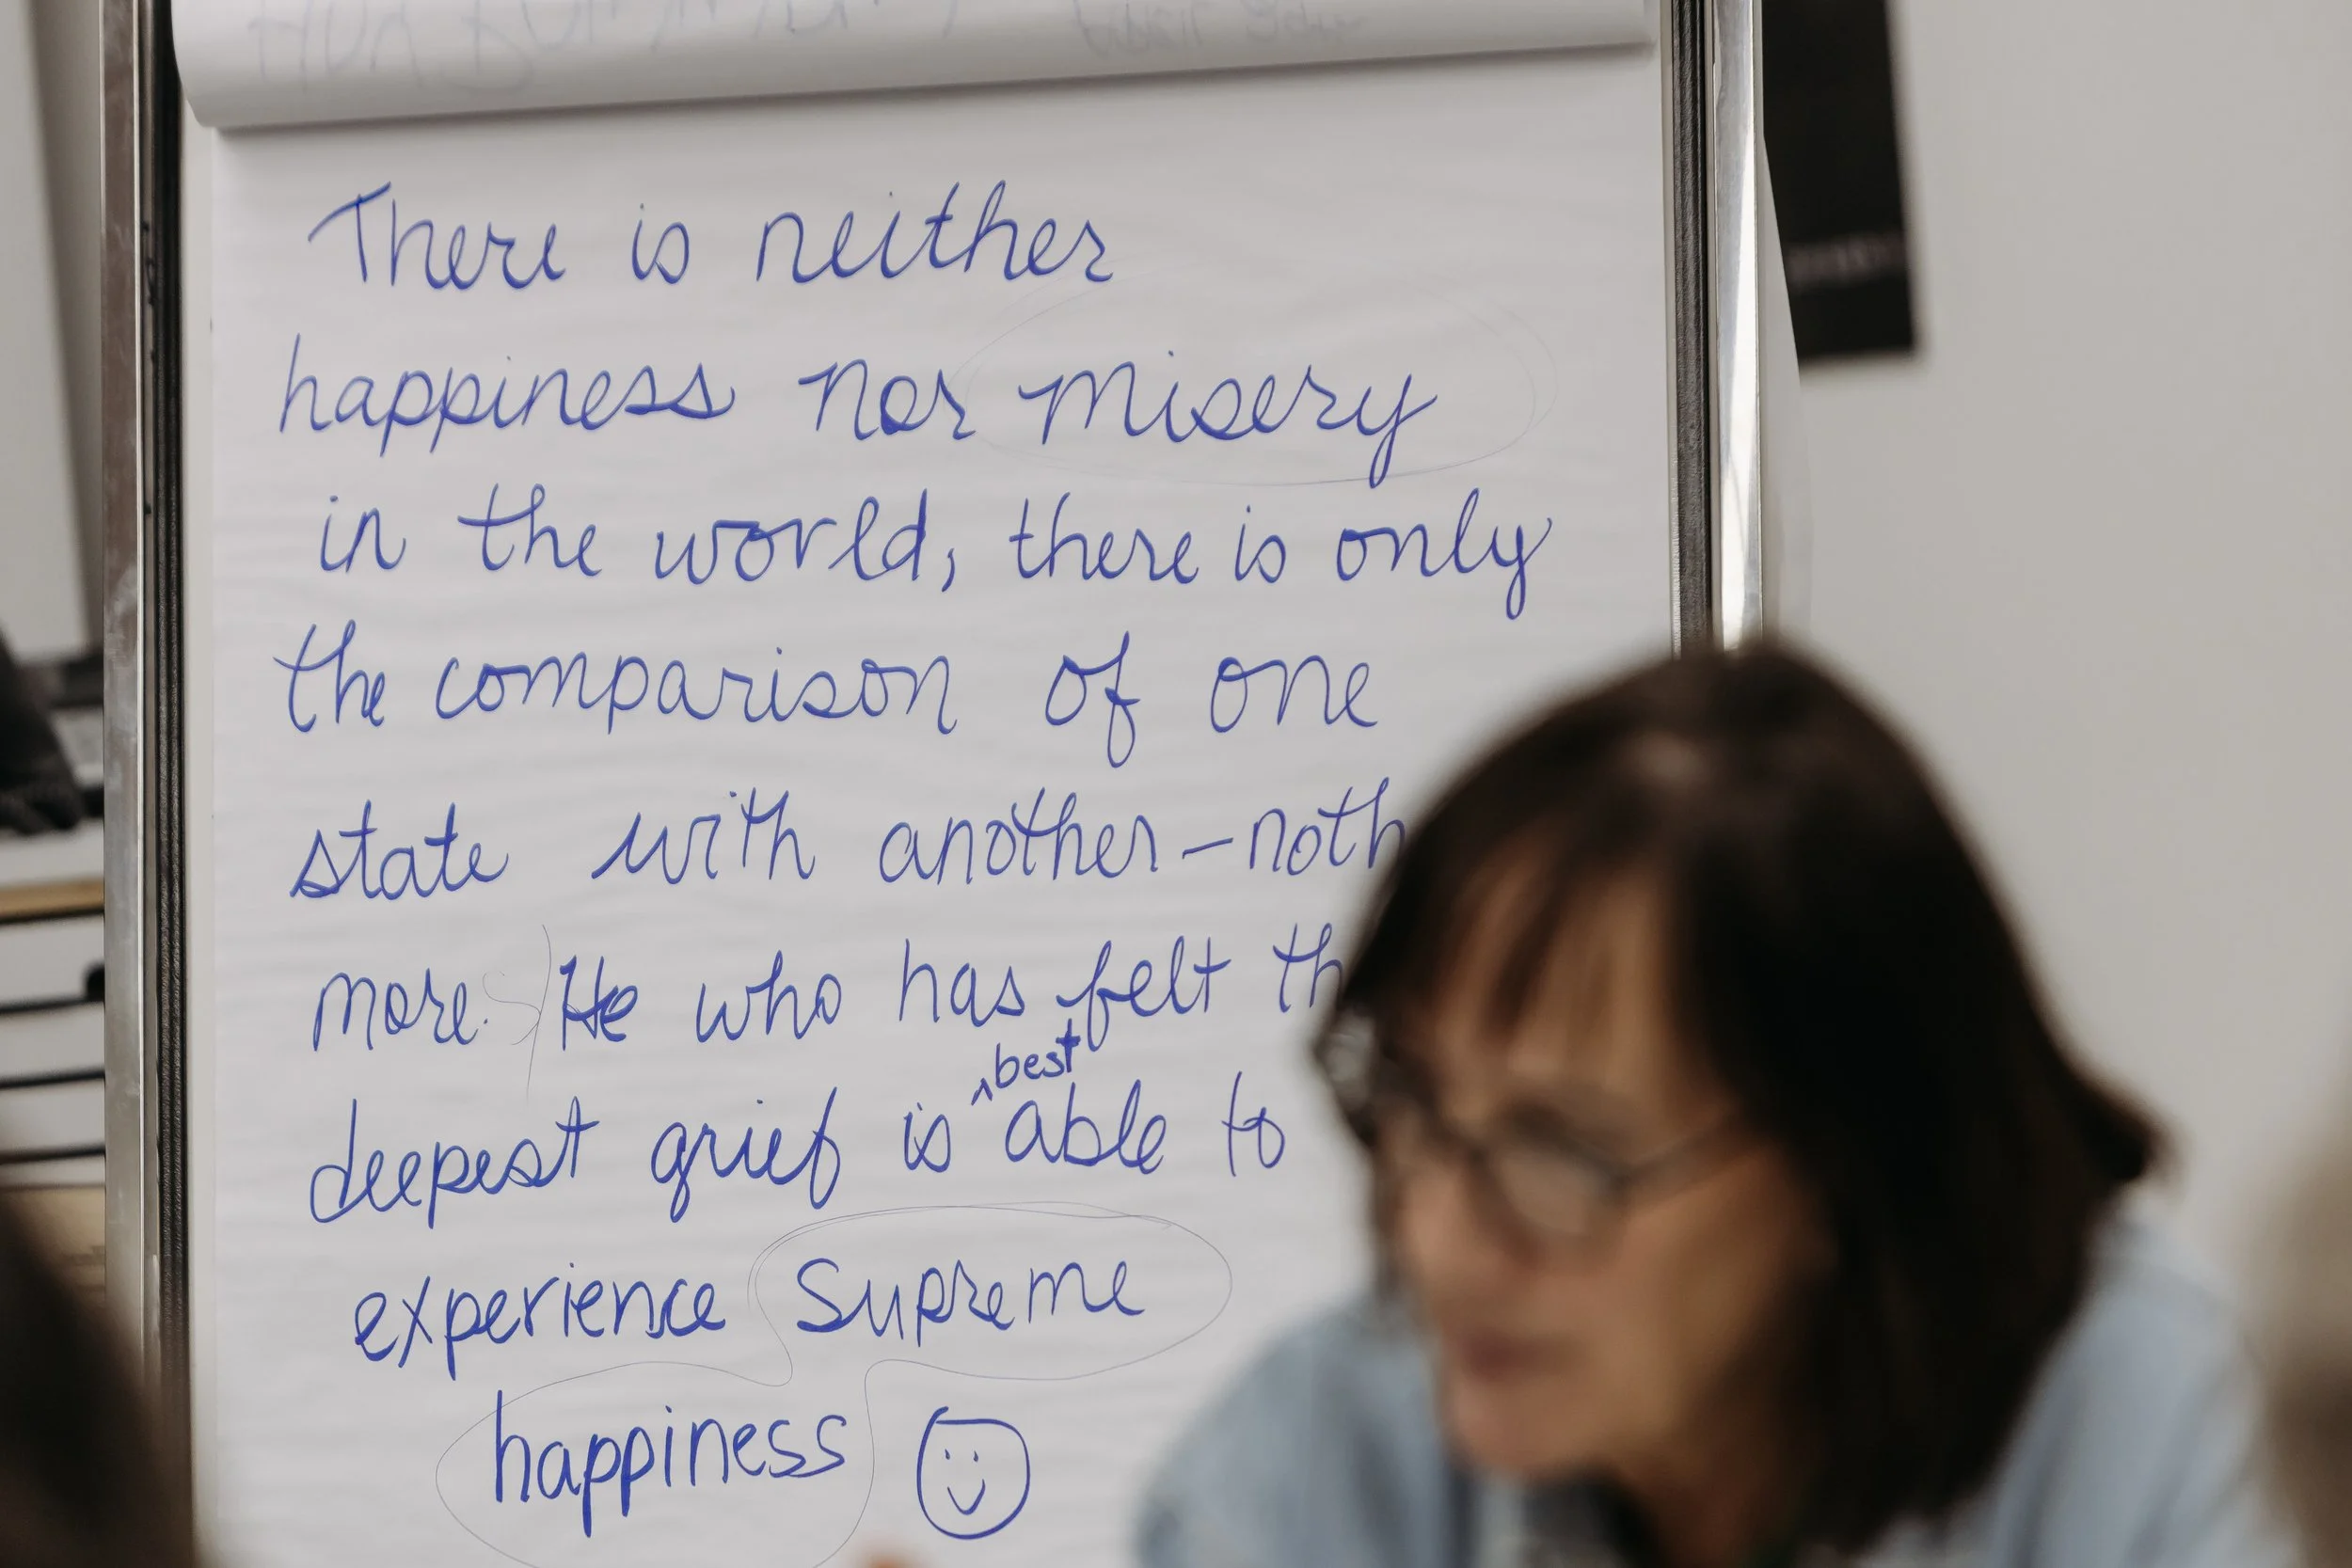 There is neither
happiness nor misery
in the world, there is only
the comparison of one
state with another - noth
more. He who has felt th
best
deepest grief is ^ able to
experience Supreme
happiness